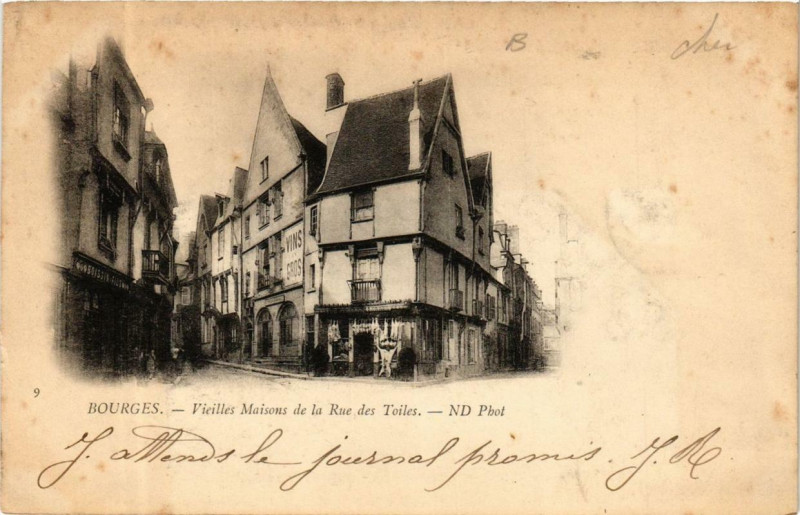 B
cher
VINS
GROS
9
BOURGES. — Vieilles Maisons de la Rue des Toiles. — ND Phot
J. attends le journal promis. J. R.